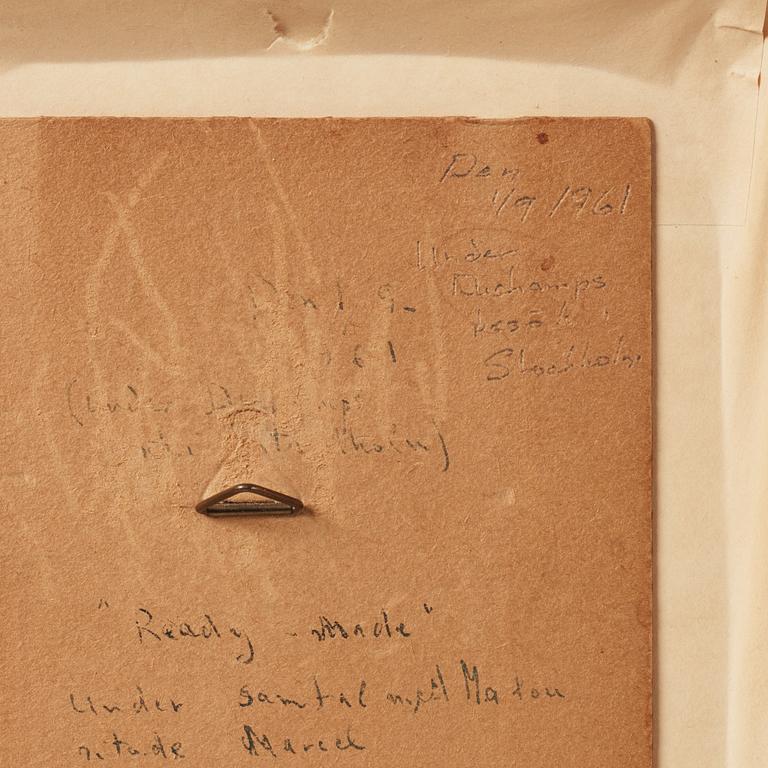 Den
1/9 1961
Under
Duchamps
besök i
Stockholm
61
(under
Stockholm)
"Ready-Made"
under samtal med
ritade Marcel